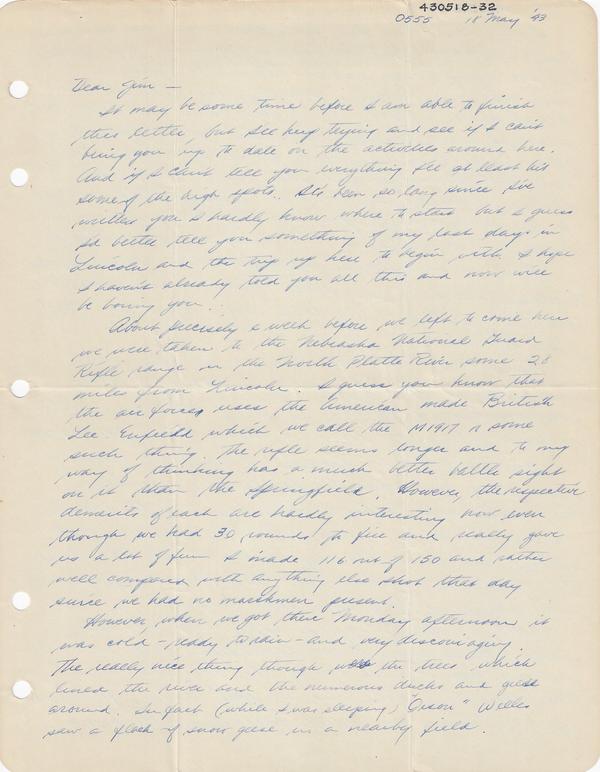 430518-32
0555 18 May '43
Dear Jim —
It may be some time before I am able to finish
this letter but I'll keep trying and see if I can't
bring you up to date on the activities around here.
And if I can't tell you everything I'll at least hit
some of the high spots. It's been so long since I've
written you I hardly know where to start but I guess
I'd better tell you something of my last days in
Lincoln and the trip up here to begin with. I hope
I haven't already told you all this and now will
be boring you.
About precisely a week before we left to come here
we were taken to the Nebraska National Guard
Rifle range on the North Platte River some 28
miles from Lincoln. I guess you know that
the air forces uses the American made British
Lee-Enfield which we call the M1917 or some
such thing. The rifle seems longer and to my
way of thinking has a much better battle sight
on it than the Springfield. However, the respective
demerits of each are hardly interesting now even
though we had 30 rounds to fire and really gave
us a lot of fun. I made 116 out of 150 and rather
well compared with anything else shot that day
since we had no marksmen present.
However, when we got there Monday afternoon it
was cold - ready to rain - and very discouraging.
The really nice thing though was the trees which
lined the river and the numerous ducks and geese
around. In fact (while I was sleeping) "Orson" Welles
saw a flock of snow geese in a nearby field.